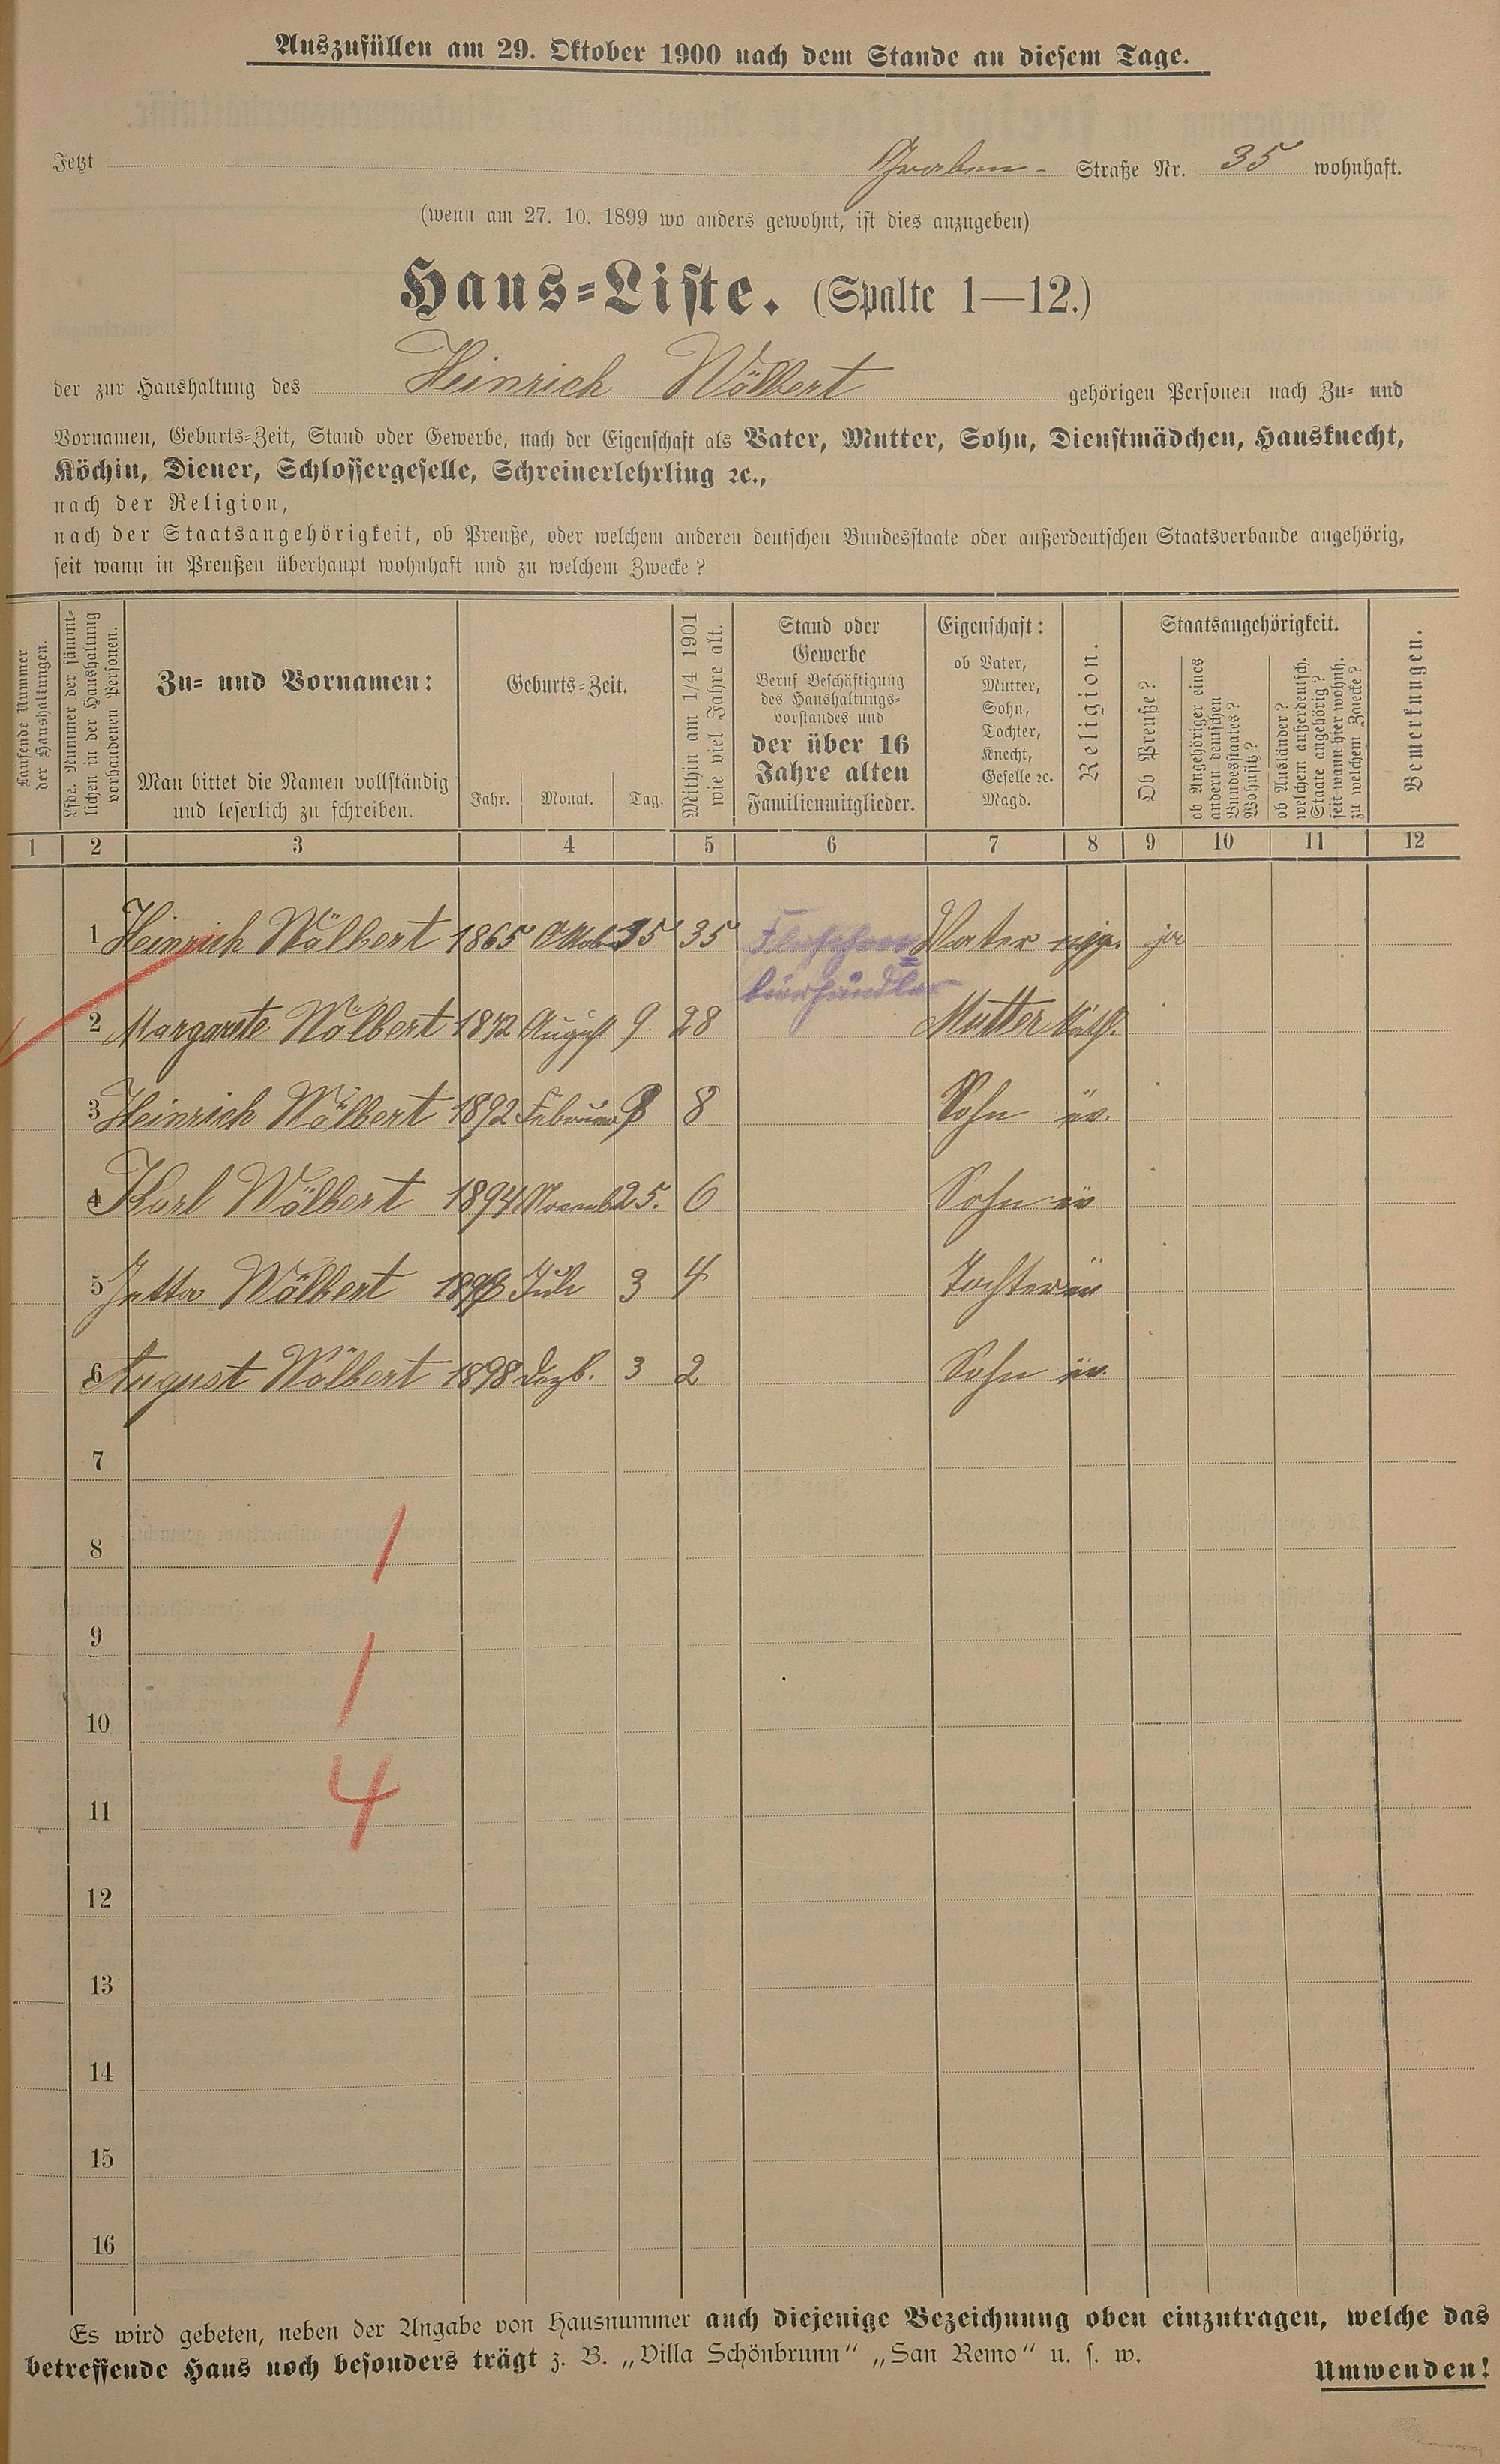 Auszufüllen am 29. Oktober 1900 nach dem Stande an diesem Tage.
Jetzt Graben- Straße Nr. 35 wohnhaft.
(wenn am 27. 10. 1899 wo anders gewohnt, ist dies anzugeben)
Haus-Liste. (Spalte 1—12.)
der zur Haushaltung des Heinrich Wölbert gehörigen Personen nach Zu- und
Vornamen, Geburts-Zeit, Stand oder Gewerbe, nach der Eigenschaft als Vater, Mutter, Sohn, Dienstmädchen, Hausknecht,
Köchin, Diener, Schlossergeselle, Schreinerlehrling ꝛc.,
nach der Religion,
nach der Staatsangehörigkeit, ob Preuße, oder welchem anderen deutschen Bundesstaate oder außerdeutschen Staatsverbande angehörig,
seit wann in Preußen überhaupt wohnhaft und zu welchem Zwecke?
Laufende Nummer
der Haushaltungen.
Lfde. Nummer der sämmt-
lichen in der Haushaltung
vorhandenen Personen.
Zu- und Vornamen:
Man bittet die Namen vollständig
und leserlich zu schreiben.
Geburts-Zeit.
Jahr. Monat. Tag.
Mithin am 1/4 1901
wie viel Jahre alt.
Stand oder
Gewerbe
Beruf Beschäftigung
des Haushaltungs-
vorstandes und
der über 16
Jahre alten
Familienmitglieder.
Eigenschaft:
ob Vater,
Mutter,
Sohn,
Tochter,
Knecht,
Geselle ꝛc.
Magd.
Religion.
Staatsangehörigkeit.
Ob Preuße?
ob Angehöriger eines
andern deutschen
Bundesstaates?
Wohnsitz?
ob Ausländer?
welchem außerdeutsch.
Staate angehörig?
seit wann hier wohnh.
zu welchem Zwecke?
Bemerkungen.
1 2 3 4 5 6 7 8 9 10 11 12
1 Heinrich Wölbert 1865 Oktob 15 35 Flaschen Vater ja
bierhändler
2 Margarete Wölbert 1872 August 9. 28 Mutter Kath.
3 Heinrich Wölbert 1892 Februar 8 8 Sohn ev.
4 Karl Wölbert 1894 Novemb 25. 6 Sohn ev
5 Jetta Wölbert 1896 Juli 3 4 Tochter ev
6 August Wölbert 1898 Dezb. 3 2 Sohn ev.
7
8 1
9
1
10
4
11
12
13
14
15
16
Es wird gebeten, neben der Angabe von Hausnummer auch diejenige Bezeichnung oben einzutragen, welche das
betreffende Haus noch besonders trägt z. B. „Villa Schönbrunn“ „San Remo“ u. s. w.
Umwenden!